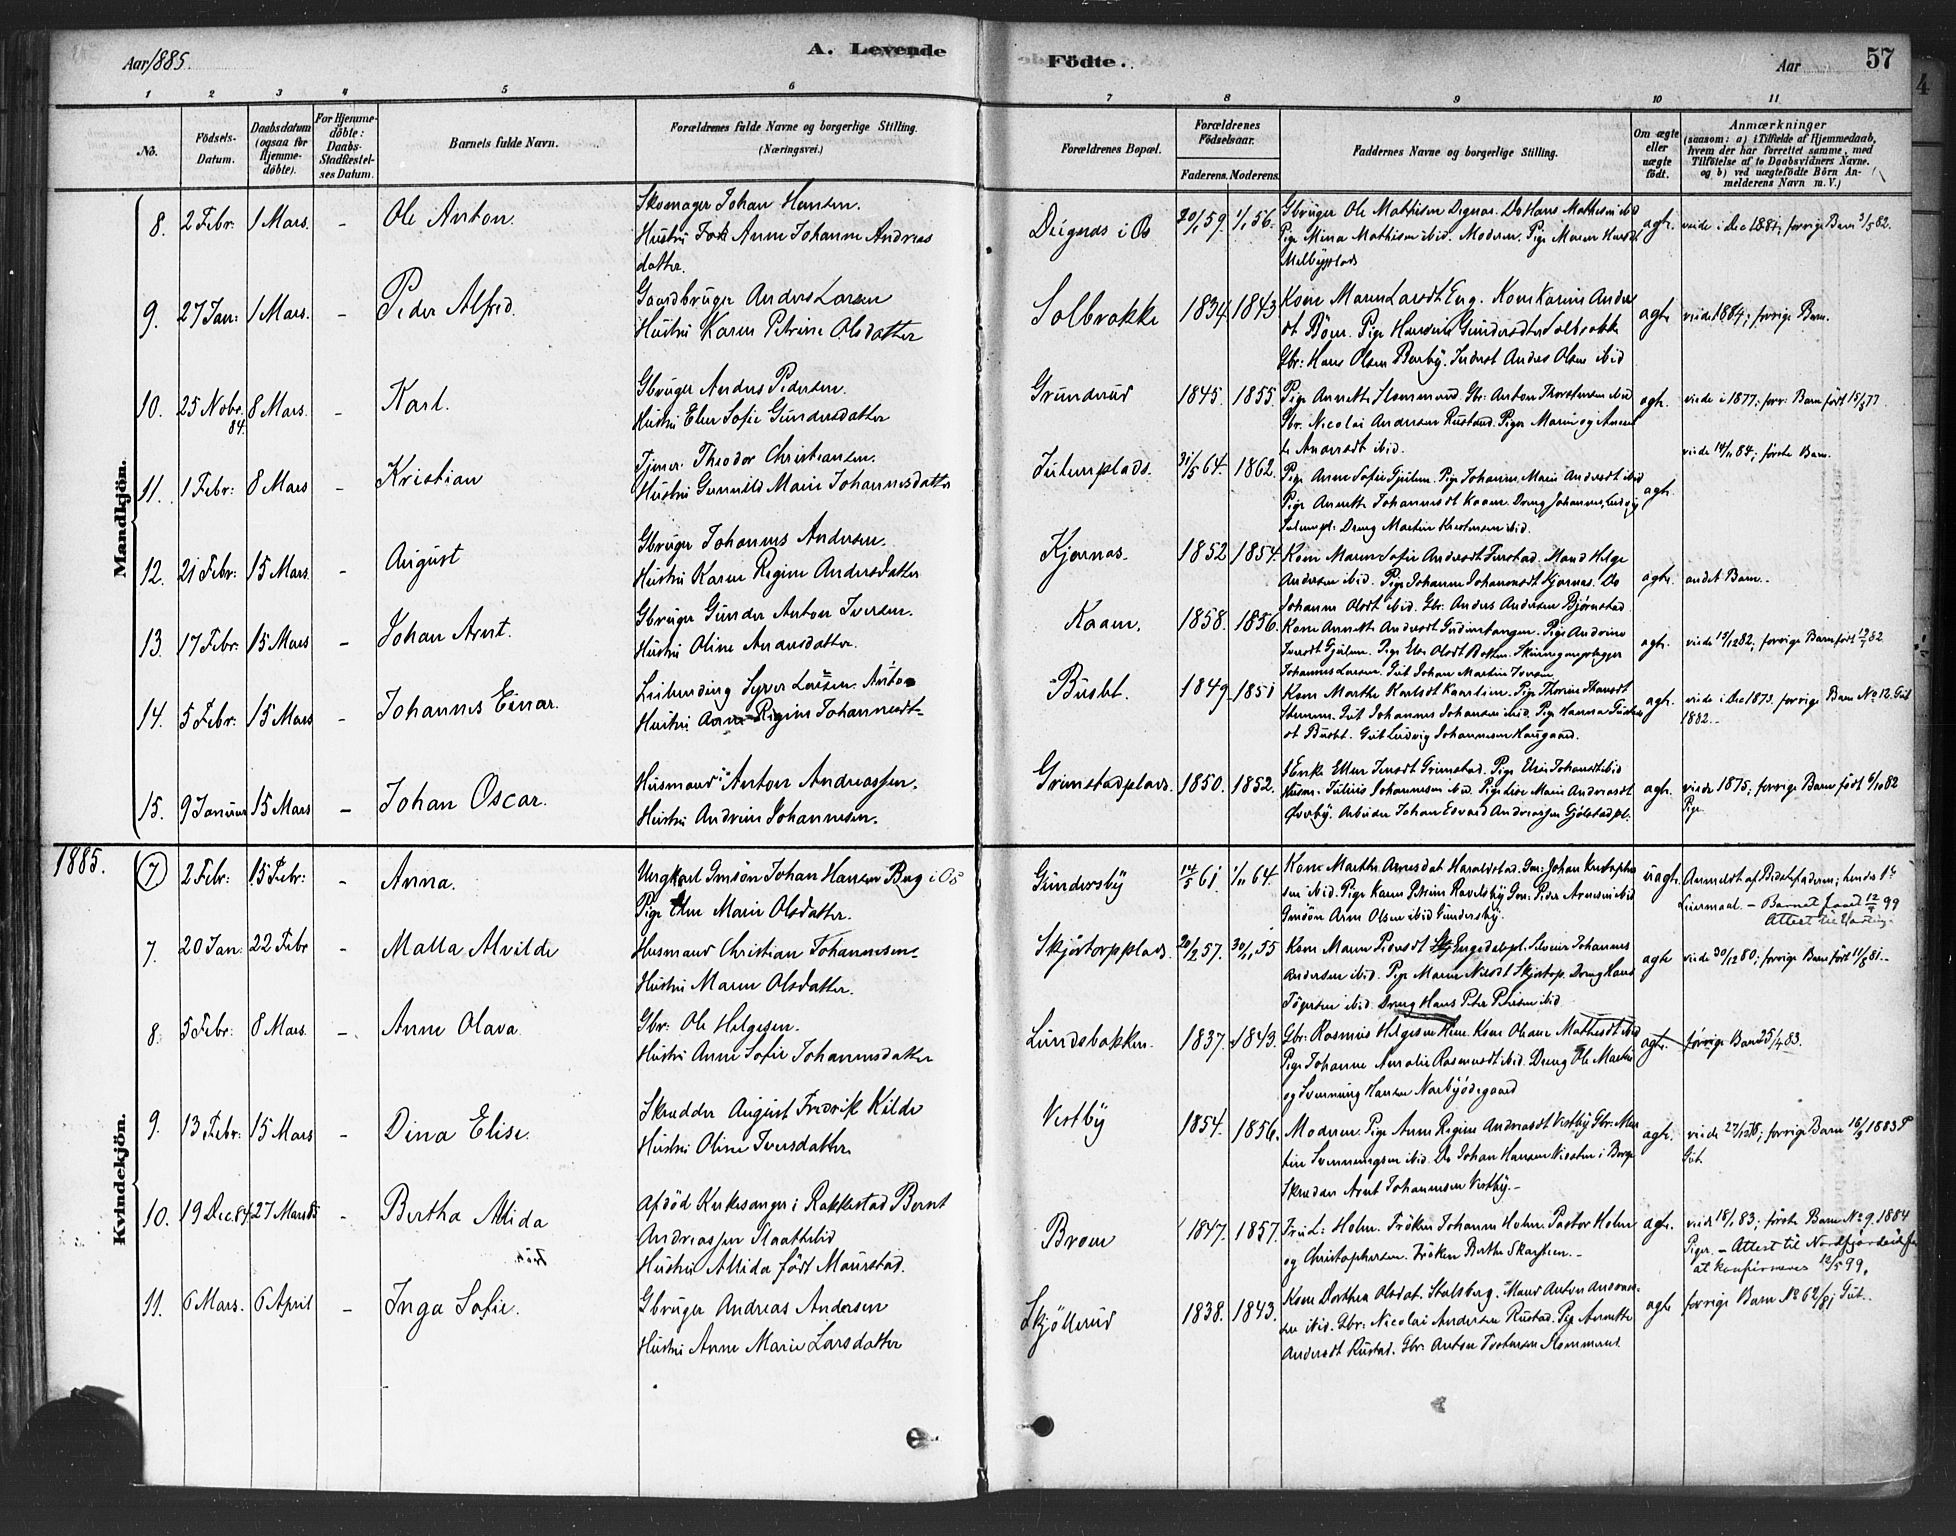 Aar 1885.
A. Levende
Födte.
Aar
57
1 2 3 4 5 6 7 8 9 10 11
No.
Födsels-
Datum.
Daabsdatum
(ogsaa for
Hjemme-
døbte).
For Hjemme-
døbte:
Daabs-
Stadfæstel-
ses Datum.
Barnets fulde Navn.
Forældrenes fulde Navne og borgerlige Stilling.
(Næringsvei.)
Forældrenes Bopæl.
Forældrenes
Födselsaar.
Faderens. Moderens.
Faddernes Navne og borgerlige Stilling.
Om ægte
eller
uægte
født.
Anmærkninger
(saasom: a) i Tilfælde af Hjemmedaab,
hvem der har forrettet samme, med
Tilföielse af to Daabsvidners Navne.
og b) ved uægtefödte Börn An-
melderens Navn m. V.)
Mandkjön.
8. 2 Febr. 1 Mars. - Ole Anton.
Skomager Johan Hansen.
Hustru Anne Johanne Andreas
datter.
Degnæs i Os 20/1 59. 1/1 56.
Gbruger Ole Mathisen Degnæs. Do Hans Mathisen ibid
Pige Mina Mathisen ibid. Moderen. Pige Maren Hansdt
Melbyplads
ægte. viede i Dec 1881; forrige Barn 3/5 82.
9. 27 Jan: 1 Mars. - Peder Alfred.
Gaardbruger Anders Larsen
Hustru Karen Petrine Olsdatter
Solbrække 1834 1843
Kone Maren Larsdt Eng. Kone Karine Anders
dt Böen. Pige Hansine Gundersdtr Solbrække
Gbr: Hans Olsen Barby. Inderst Anders Olsen ibid
ægte viede 1884; forrige Barn.
10. 25 Novbr. 84. 8 Mars. - Karl.
Gbruger Anders Pedersen.
Hustru Elen Sofie Gundersdatter
Grunerud 1845. 1855.
Pige Annette Slommerud. Gbr: Anton Thorstensen ibid
Gbr. Nicolai Andersen Rustad. Piger Marie og Annet
te Andersdt ibid.
ægte. viede i 1877; forr: Barn født 15/8 77.
11. 1 Febr: 8 Mars - Kristian
Tjener Theodor Christiansen.
Hustru Gunnild Marie Johannesdatter
Julumplads. 31/5 64. 1862.
Pige Anne Sofie Gjulem. Pige Johanne Marie Andersdt ibid
Pige Annette Johannesdt Kaam. Dreng Johannes Ludvig
Julumpl: Dreng Martin Kristensen ibid.
ægte. viede 14/11 84; første Barn.
12. 21 Febr: 15 Mars. - August
Gbruger Johannes Andersen.
Hustru Karen Regine Andersdatter
Kjærnæs. 1852 1854.
Kone Maren Sofie Andersdt Finstad. Mand Helge
Andersen ibid. Pige Johanne Johannesdt Kjærnæs. Do
Johanne Olsdt ibid. Gbr: Anders Andersen Bjørnstad
ægte. andet Barn.
13. 17 Febr: 15 Mars - Johan Arnt.
Gbruger Gunder Anton Iversen.
Hustru Oline Andersdatter.
Kaam. 1858. 1856.
Kone Annette Andersdt Gudimtangen. Pige Andrine
Iversdt Gjulem. Pige Elen Olsdt Botten.
Johannes Larsen. Gut Johan Martin
ægte. viede 15/12 82; forrige Barn født 12/7 82
14. 5 Febr: 15 Mars - Johannes Einar.
Leilænding Syver Larsen.
Hustru Regine Johannesdt
Busbt. 1849 1851
Kone Marthe Karlsdt Kaarlien. Pige Thorine Hansdt
Stemmen. Gut Johannes Johansen ibid. Pige Hanna
dt Busbt. Gut Ludvig Johannesen Haugaard.
ægte. viede i Dec 1873. forrige Barn No 12. Gut
1882.
15. 9 Januar 15 Mars - Johan Oscar.
Husmand Anton Andreassen.
Hustru Andrine Johannesen.
Grimstadplads. 1850. 1852.
Enke Ellen Jensdt Grimstad. Pige Elise Johansdt ibid
Husm. Julius Johannesen ibid. Pige Lise Marie Andersdt
Østby. Arbeider Johan Edvard Andreassen Gjølstadpl.
ægte. viede 1875; forrige Barn født 6/10 82
Pige
Kvindekjön.
1885. 7 2 Febr: 15 Febr: - Anna.
Ungkarl Gmsøn Johan Hansen Berg i Os
Pige Elen Marie Olsdatter.
Gundersby 14/5 61. 1/11 64.
Kone Marthe Arnesdat Haraldstad. Gm: Johan Kristophe
sen ibid. Pige Karen Petrine Ravelsby Gm: Peder Arnesen ibid
Gmsön Arne Olsen ibid Gundersby.
uægte. Anmeldt af Bedstefaderen; hendes 1ste
Leiermaal. - Barnet faaet 12/9 99
Attest til
7. 20 Jan: 22 Febr - Malla Alvilde
Husmand Christian Johannesen
Hustru Maren Olsdatter.
Skjøtorpplads. 20/2 57. 30/11 55
Kone Maren Pedersdt Engedalpl.
Andersen ibid. Pige Maren Nilsdt Skjøtorp. Dreng Hans
ibid. Dreng Hans Peter Petersen ibid
ægte viede 30/12 80; forrige Barn født 11/8 81.
8. 5 Febr: 8 Mars. - Anne Olava
Gbr: Ole Helgesen.
Hustru Anne Sofie Johannesdatter
Lundsbakken. 1837. 1843.
Gbr: Rasmus Helgesen Hem. Kone Oleane Mathisdt ibid
Pige Johanne Amalie Rasmusdt ibid. Dreng Ole Martin
og Svenning Hansen Narbyødegaard
ægte. forrige Barn 25/4 83.
9. 13 Febr: 15 Mars - Dina Elise.
Skrædder August Fredrik Kilde
Hustru Oline Iversdatter.
Vestby 1854. 1856.
Moderen. Pige Anne Regine Andersdt Vestby Gbr: Mar
tin Svenningsen ibid. Do Johan Hansen Nesten i Borge
Skrædder Arnt Johannesen Vestby.
ægte. viede 27/12 78; forrige Barn 16/3 1883
Gut.
10. 19 Dec. 84 27 Mars 85 - Bertha Alida
Afdød Kirkesanger i Rakkestad Bernt
Andreassen Kaathelid
Hustru Alida født Maurstad.
Broen 1847. 1857.
Fru L: Holm. Fröken Johanne Holm. Pastor Holm
og Christophersen. Fröken Berthe Skarsteen.
ægte. viede 18/1 83; første Barn No 9. 1884
Piger. - Attest til Nordfjordeid for
at konfirmeres 12/5 99.
11. 6 Mars. 6 April - Inga Sofie.
Gbruger Andreas Andersen
Hustru Anne Marie Larsdatter
Skjöllerud 1838. 1843.
Kone Dorthea Olsdat. Stalsberg. Mand Anton Andreas-
sen ibid. Gbr: Nicolai Andersen Rustad. Pige Annette
Andersdt Rustad. Gbr: Anton Torstensen Slommerud
ægte forrige Barn No 6 2/2 81 Gut.